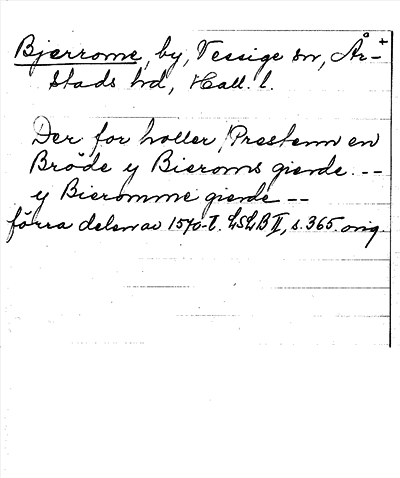 Bjerrome, by, Vessige sn, År-
stads hd, Hall. l.
Der for holler Prestenn en
Bröde y Bieroms gierde. --
y Bieromme gierde --
förra delen av 1570-t. LSLB II, s. 365. orig.